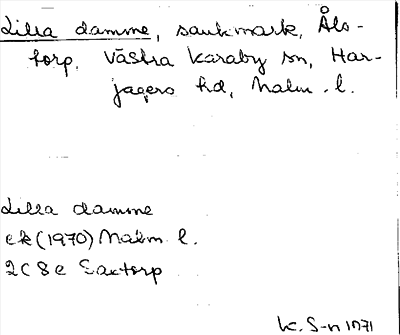 Lilla damme, sankmark, Åls-
torp, Västra Karaby sn, Har-
jagers hd, Malm. l.
Lilla damme
ek (1970) Malm l.
2C 8e Saxtorp
K. S-n 1971